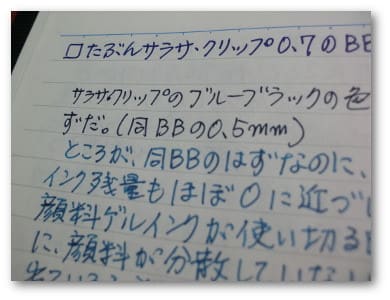 □たぶんサラサ・クリップ0.7のBB
サラサクリップのブルーブラックの色
ずだ。(同BBの0.5mm)
ところが、同BBのはずなのに、
インク残量もほぼ0に近づい
顔料ゲルインクが使い切る
に、顔料が分散していない